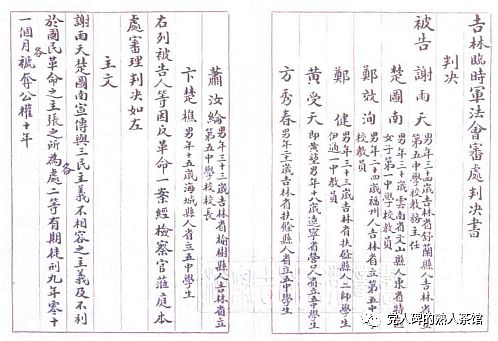 吉林臨時軍法會審處判决書
判决
被告 謝雨天 男年三十四歲吉林省舒蘭縣人吉林省立
第五中學校教務主任
楚圖南 男年三十歲雲南省文山縣人東省特區
女子第一中學校教員
鄭效洵 男年二十四歲福州人吉林省立第五中
校教員
鄭 健 男年三十三歲吉林省扶餘縣人二師學生
伊通一中教員
黄受天 即黄楚男年十八歲遼寧省營口縣人省立五中學生
方秀春 男年歲吉林省扶餘縣人省立五中學生
蕭汝綸 男年三十三歲吉林省榆樹縣人吉林省立
第五中學校校長
卞楚樵 男年十五歲海城縣人省立五中學生
右列被告人等因反革命一案經檢察官蒞庭本
處審理判决如左
主文
謝雨天楚圖南宣傳與三民主義不相容之主義及不利
於國民革命之主張之所為各處二等有期徒刑九年零十
一個月褫奪公權各十年
党人碑的熟人茶馆